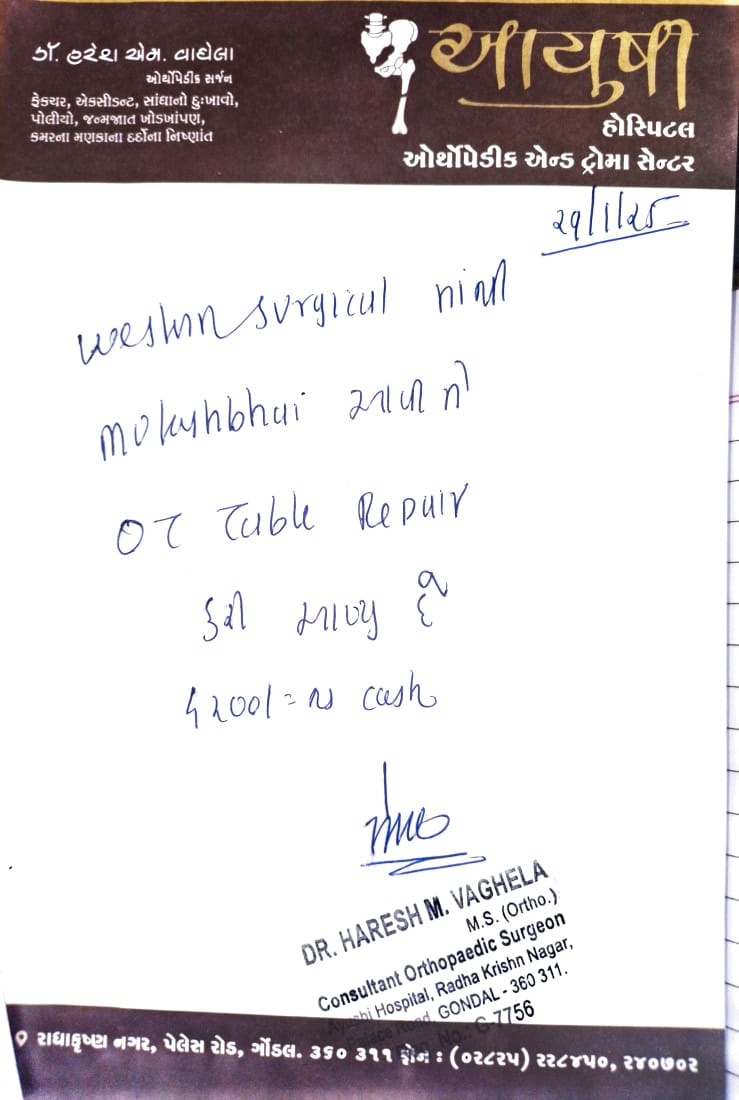 ડૉ. હરેશ એમ. વાઘેલા
ઓર્થોપેડીક સર્જન
ફેક્ચર, એકસીડન્ટ, સાંધાનો દુઃખાવો,
પોલીયો, જન્મજાત ખોડખાંપણ,
કમરના મણકાના દર્દોના નિષ્ણાંત
આયુષી
હોસ્પિટલ
ઓર્થોપેડીક એન્ડ ટ્રોમા સેન્ટર
૨૧/૧/૨૫
western surgical વાળા
mukeshbhai આવી ને
OT Table Repair
કરી આપ્યુ છે
cash
DR. HARESH M. VAGHELA
M.S. (Ortho.)
Consultant Orthopaedic Surgeon
Ayushi Hospital, Radha Krishn Nagar,
Palace Road, GONDAL - 360 311.
No.: G-7756
રાધાકૃષ્ણ નગર, પેલેસ રોડ, ગોંડલ. ૩૬૦ ૩૧૧ ફોન : (૦૨૮૨૫) ૨૨૮૪૫૦, ૨૪૦૭૦૨